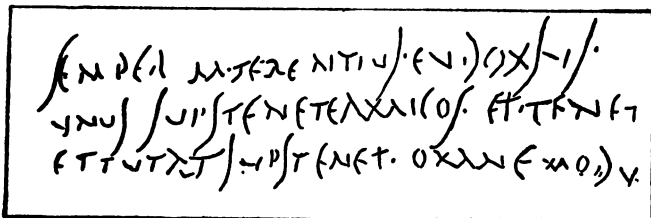 SEMPER M·TERENTIVS·EVDOXSVS·
VNVS SVPSTENET AMICOS· ET·TENET
ET TVTAT SVPSTENET· OMNEM MODV